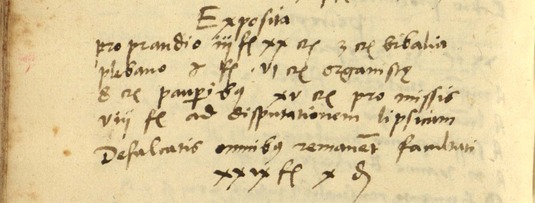 Exposita
pro prandio iiij fl xx cr 3 cr bibalia
plebano 1 fl vi cr organistę
8 cr pauperibus xv cr pro missis
viij fl ad disputationem lipsicam
Defalcatis omnibus remanent facultati
xxix fl x δ